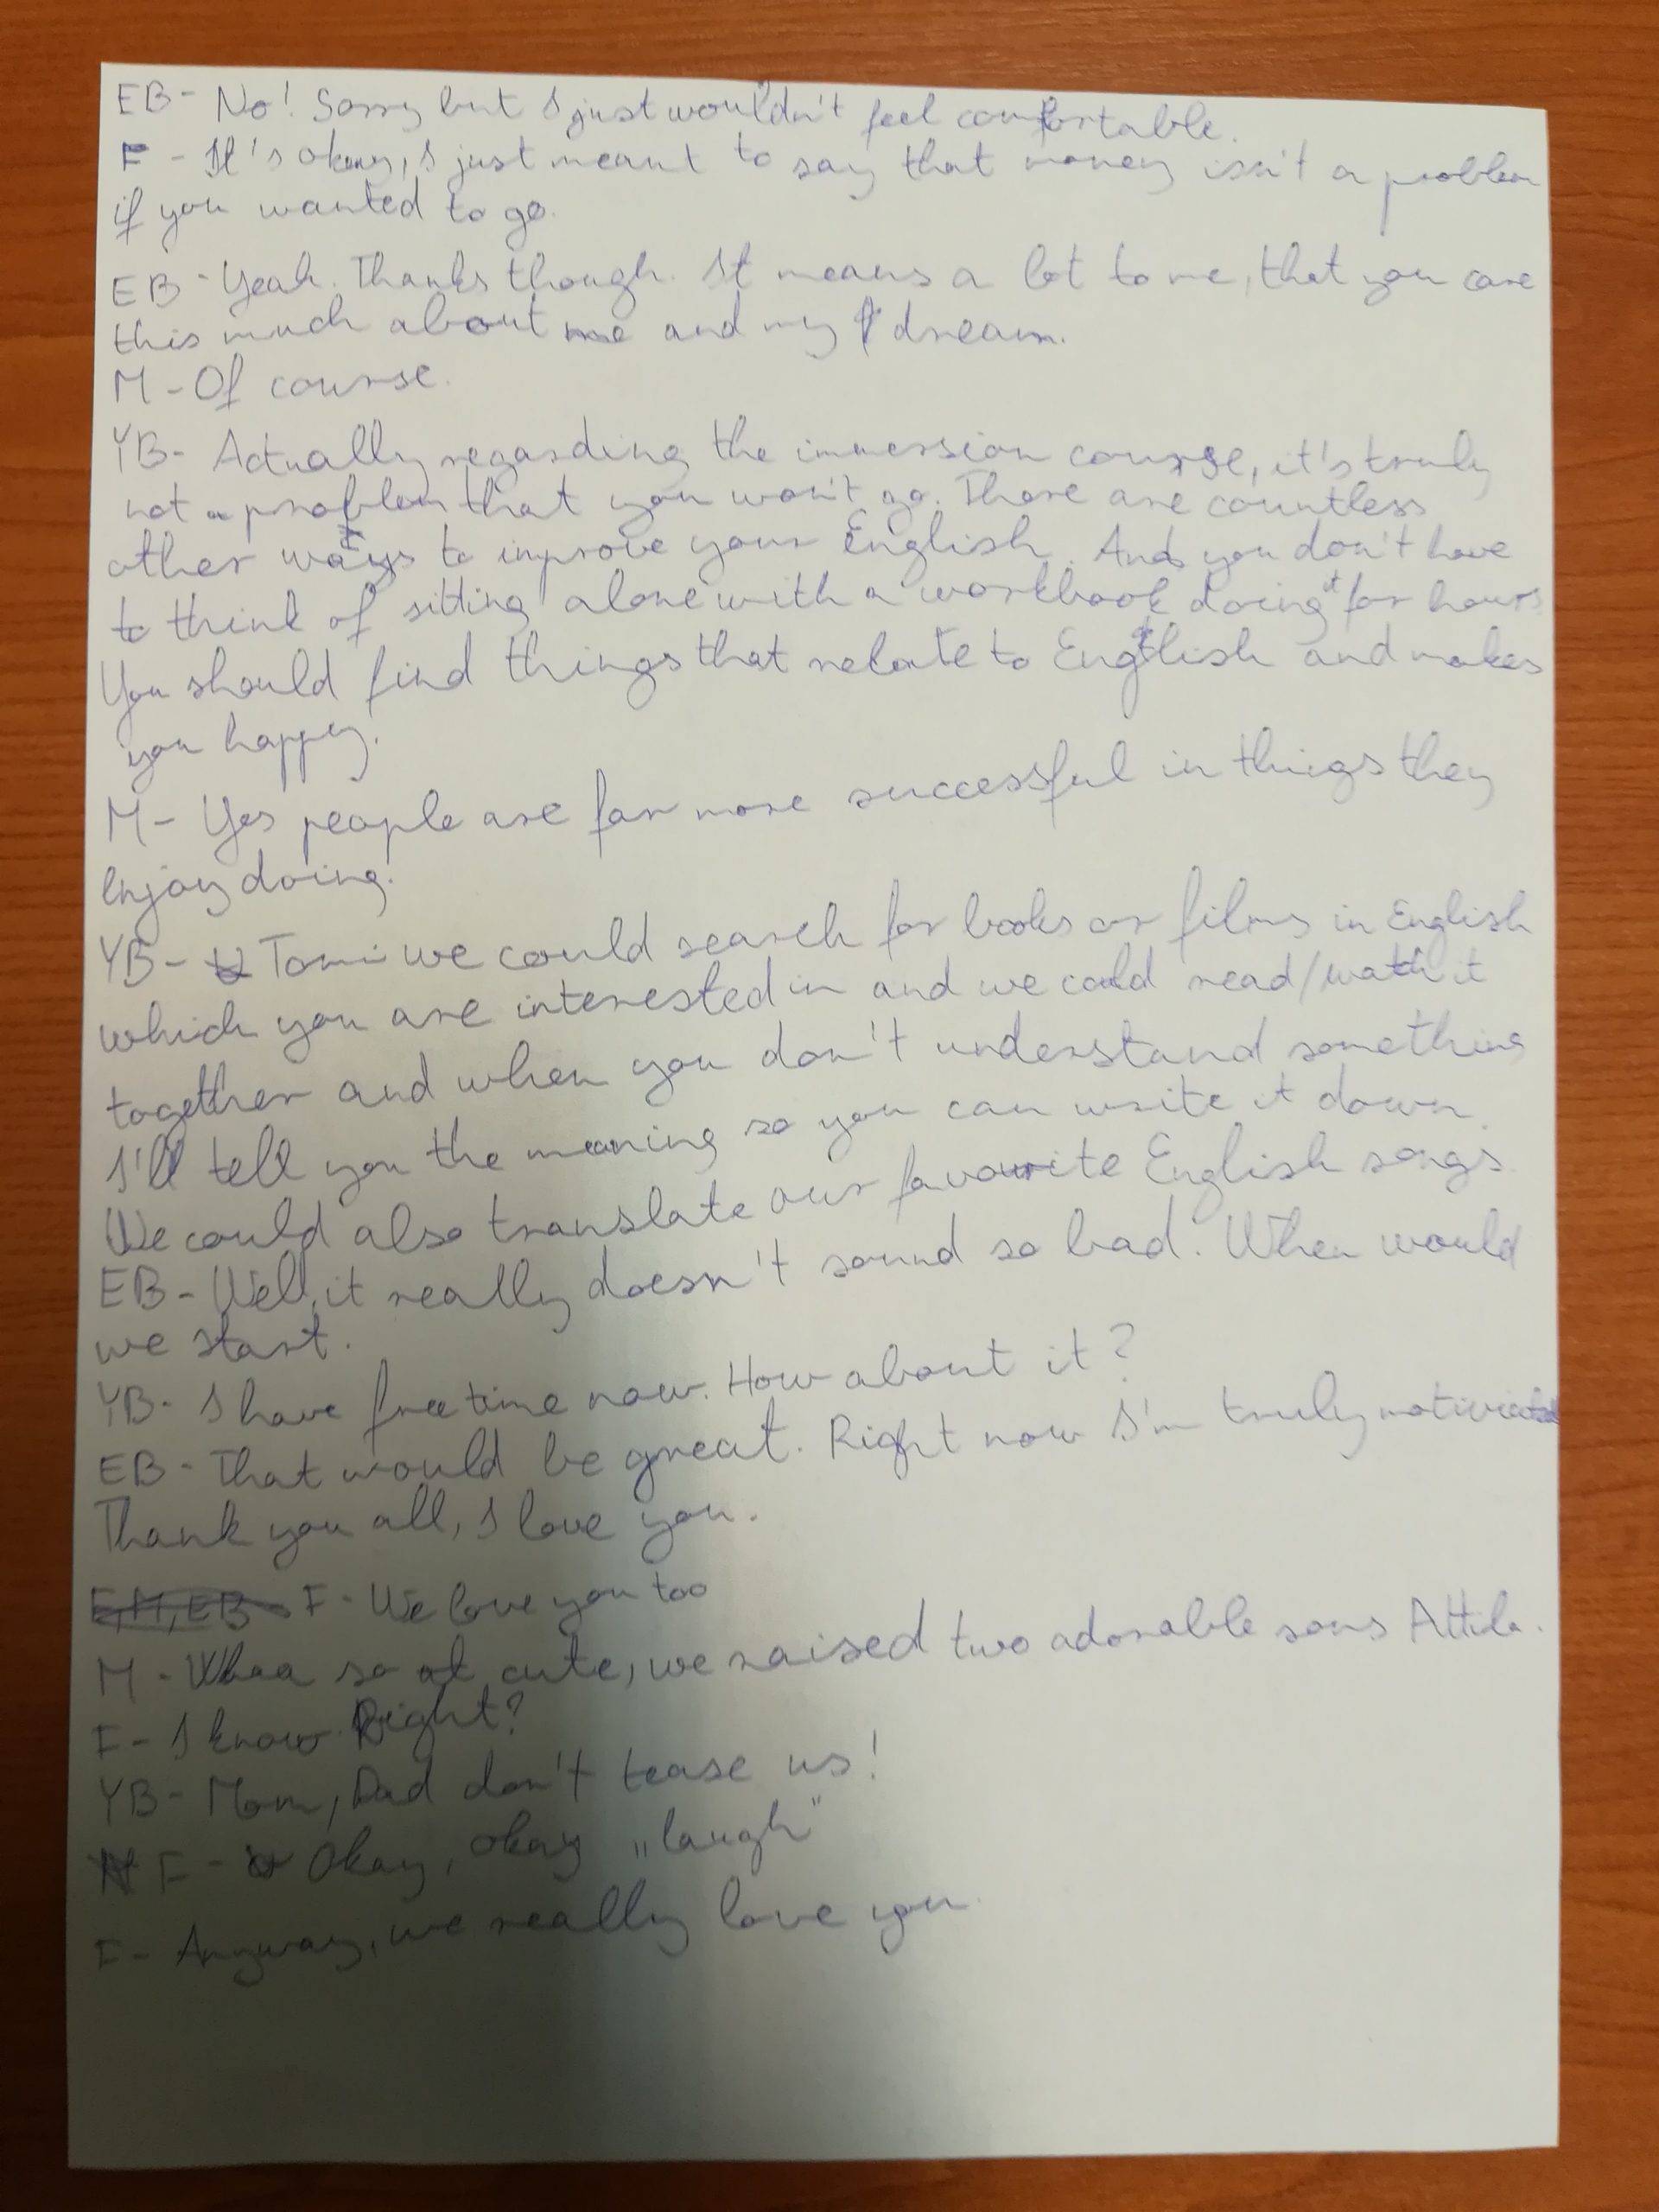 EB - No! Sorry but I just wouldn't feel comfortable.
F - It's okay, I just meant to say that money isn't a problem
if you wanted to go.
EB - Yeah. Thanks though. It means a lot to me, that you care
this much about me and my dream.
M - Of course.
YB - Actually regarding the immersion course, it's truly
not a problem that you won't go. There are countless
other ways to improve your English. And you don't have
to think of sitting alone with a workbook doing it for hours.
You should find things that relate to English and makes
you happy.
M - Yes people are far more successful in things they
enjoy doing.
YB - Tomi we could search for books or films in English
which you are interested in and we could read/watch it
together and when you don't understand something
I'll tell you the meaning so you can write it down.
We could also translate our favourite English songs.
EB - Well, it really doesn't sound so bad. When would
we start.
YB - I have free time now. How about it?
EB - That would be great. Right now I'm truly motivated
Thank you all, I love you.
F - We love you too
M - so cute, we raised two adorable sons Attila.
F - I know Right?
YB - Mom, Dad don't tease us!
F - Okay, okay „laugh"
F - Anyway, we really love you.